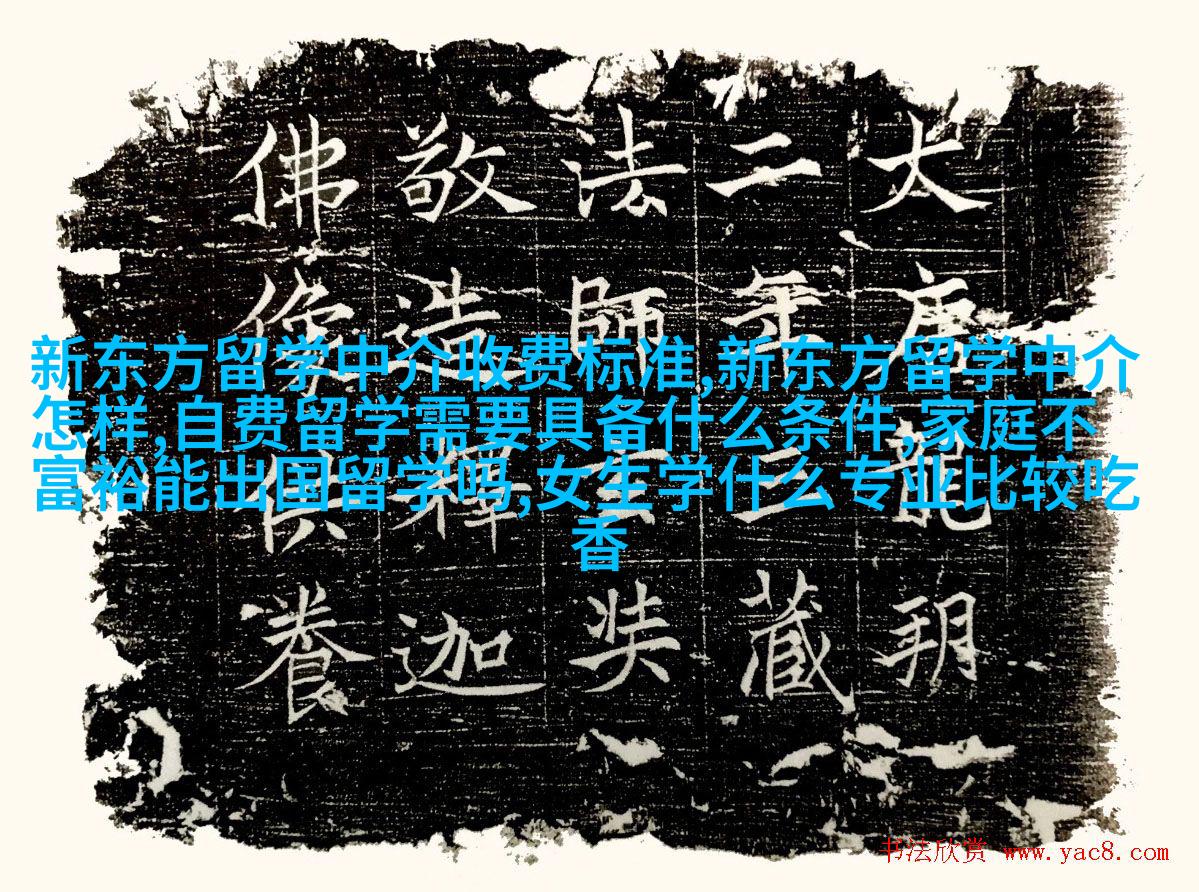 新东方留学中介收费标准,新东方留学中介
怎样,自费留学需要具备什么条件,家庭不
富裕能出国留学吗,女生学什么专业比较吃
香
大唐龍朔
二年三藏
法師玄奘
敬造釋迦
佛像供養
书法欣赏 www.yac8.com